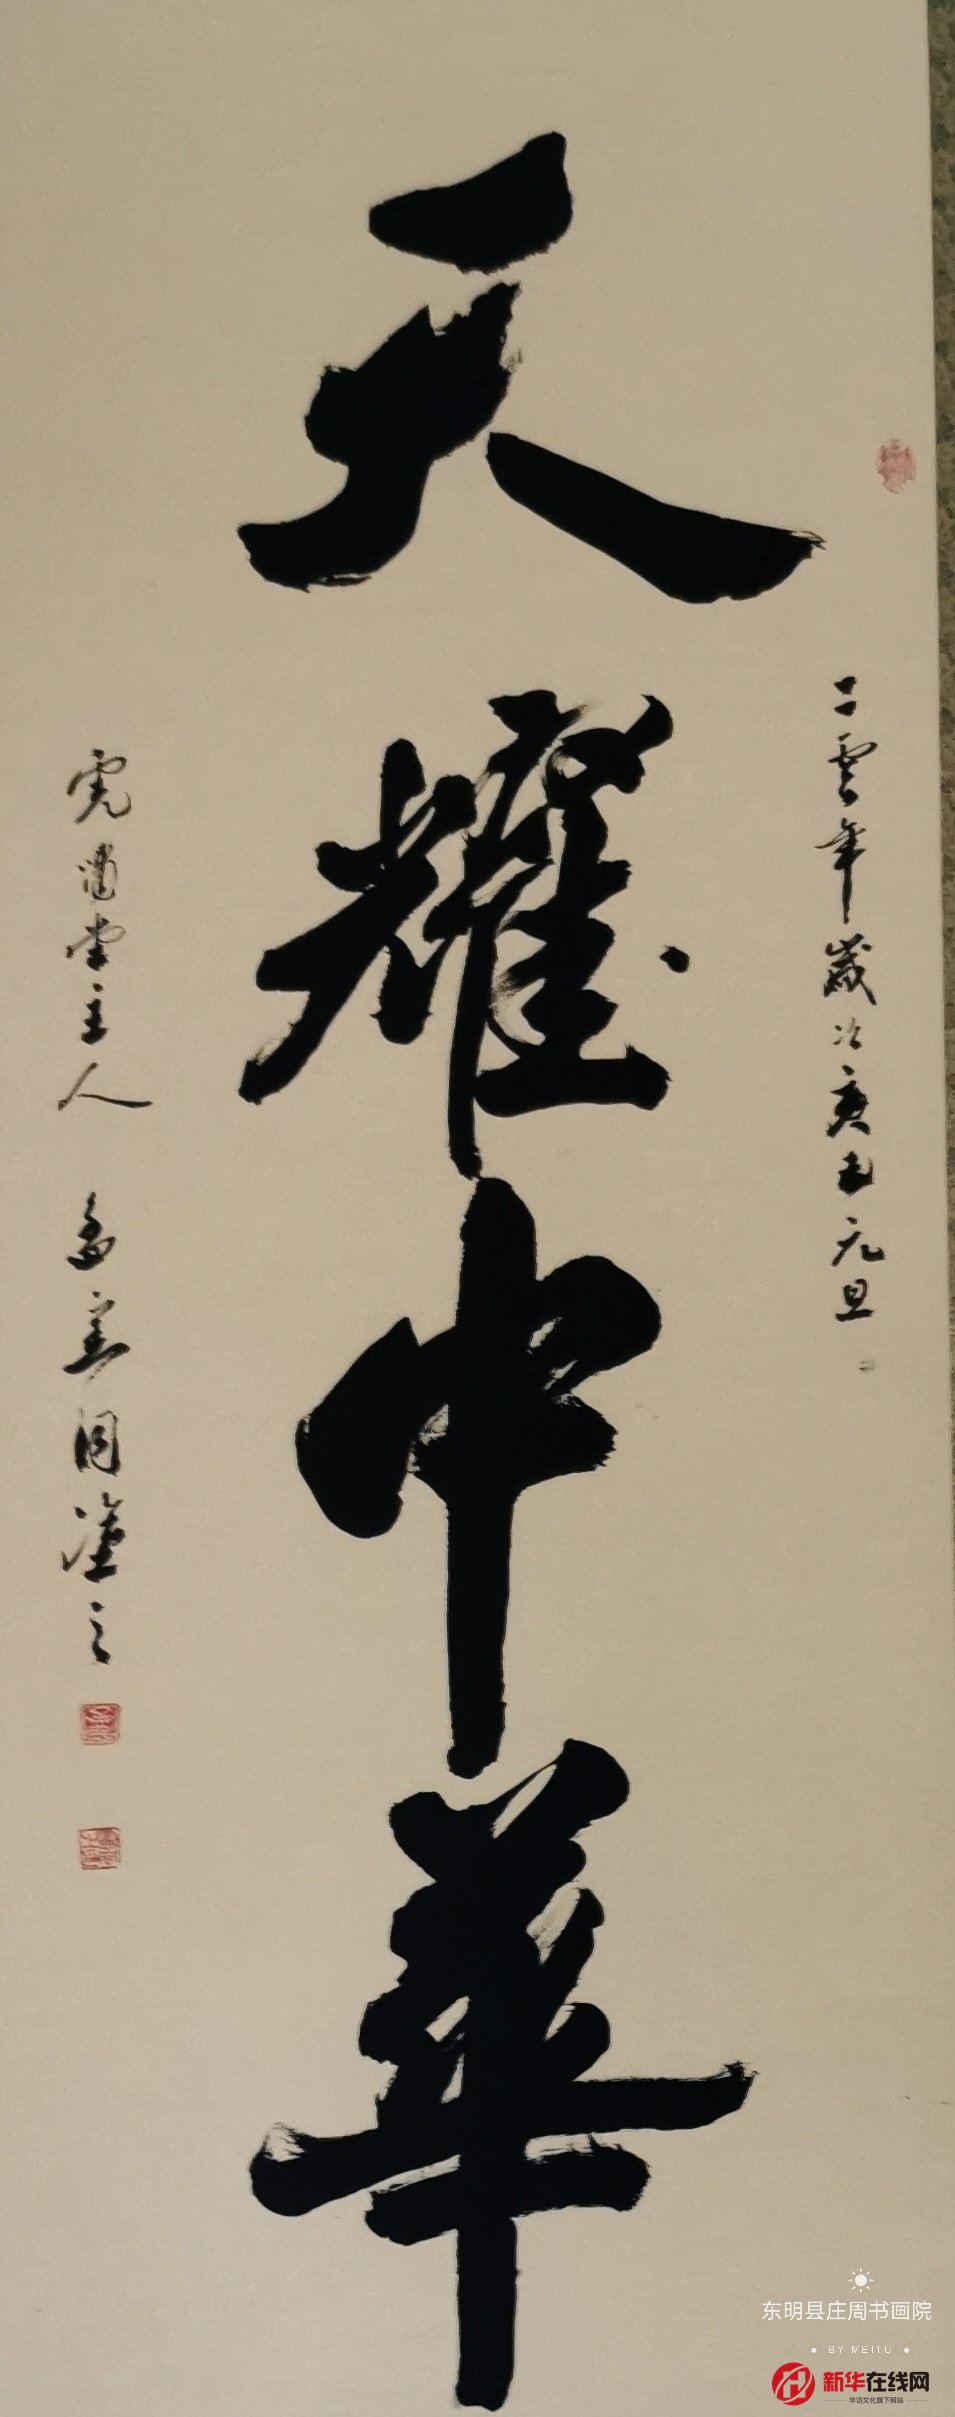 天耀中華
二〇二〇年歲次庚子元旦
虎嘯堂主人
塗之
东明县庄周书画院
BY MEITU
新华在线网
华访文化旗下网站